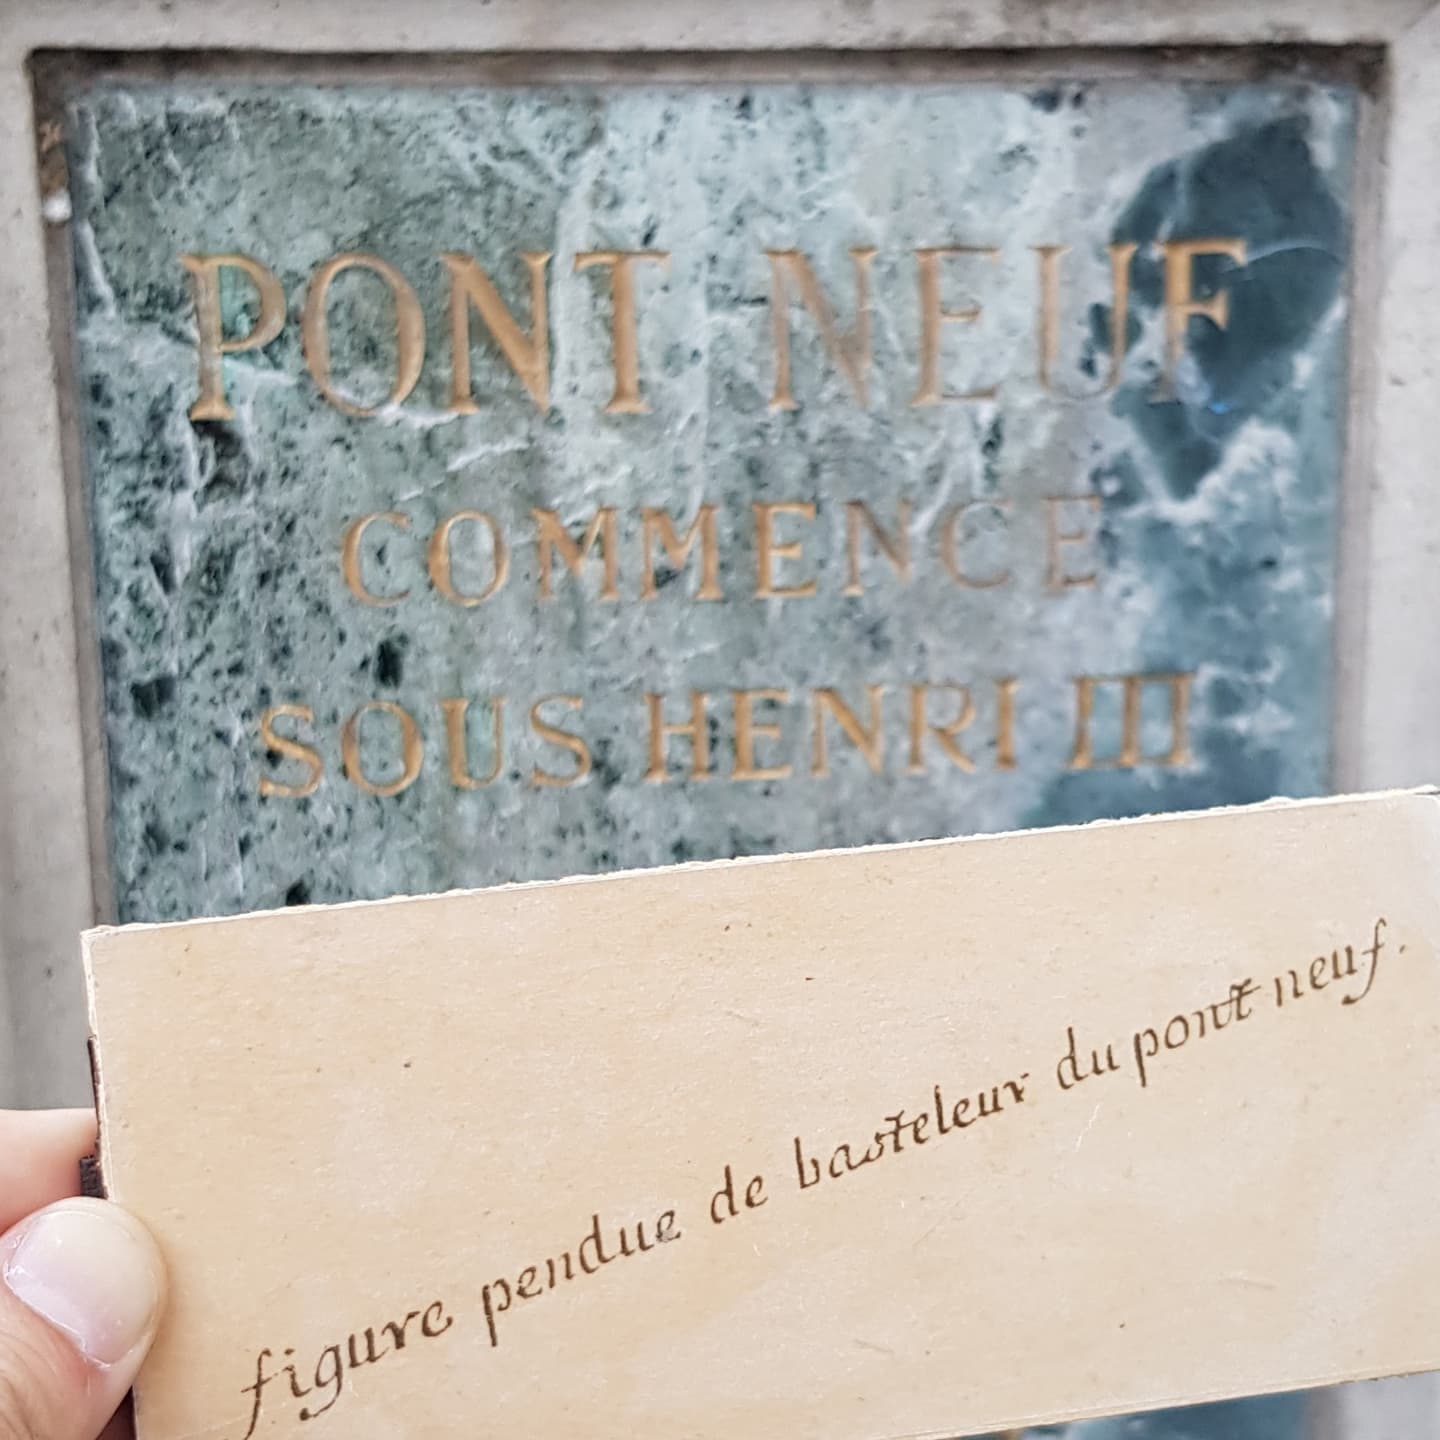 PONT NEUF
COMMENCE
SOUS HENRI III
figure pendue de basteleur du pont neuf.